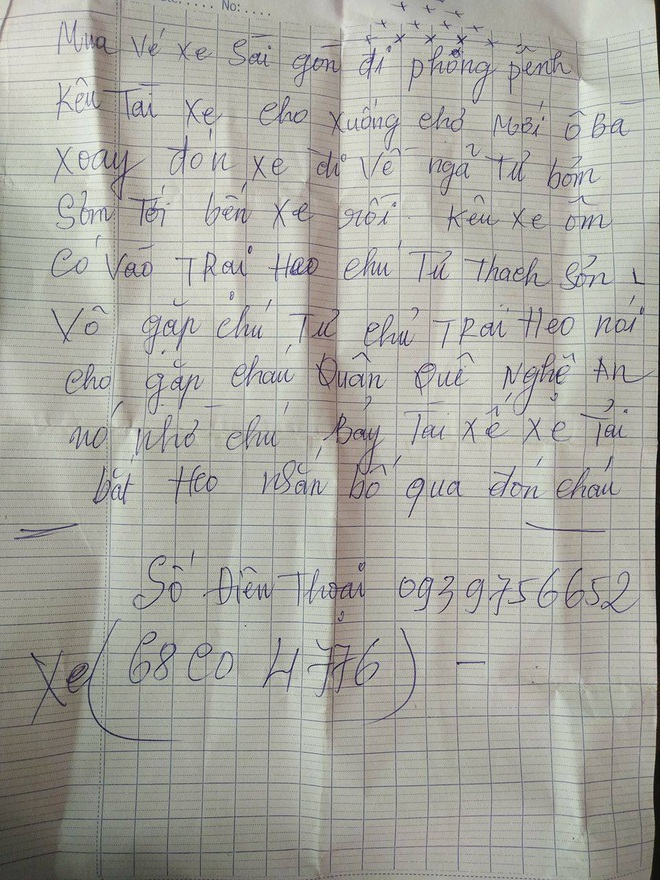 No:.....
Mua vé xe Sài gòn đi phông pênh
Kêu Tài xe cho xuống chở Mới ô Bà
xoay đón xe đi về ngã Tử bôm
Sôm Tới bến xe rồi kêu xe ôm
Có vào TRại Heo chú Tử Thach Sơn
Vô gặp chú Tử chủ TRại Heo nói
cho gặp cháu Quân Quê Nghệ An
nó nhờ chú Bảy Tài xế xe Tải
bắt Heo nhắn bố qua đón cháu
Số Điện Thoại 0939756652
Xe (68 CO 4776) –